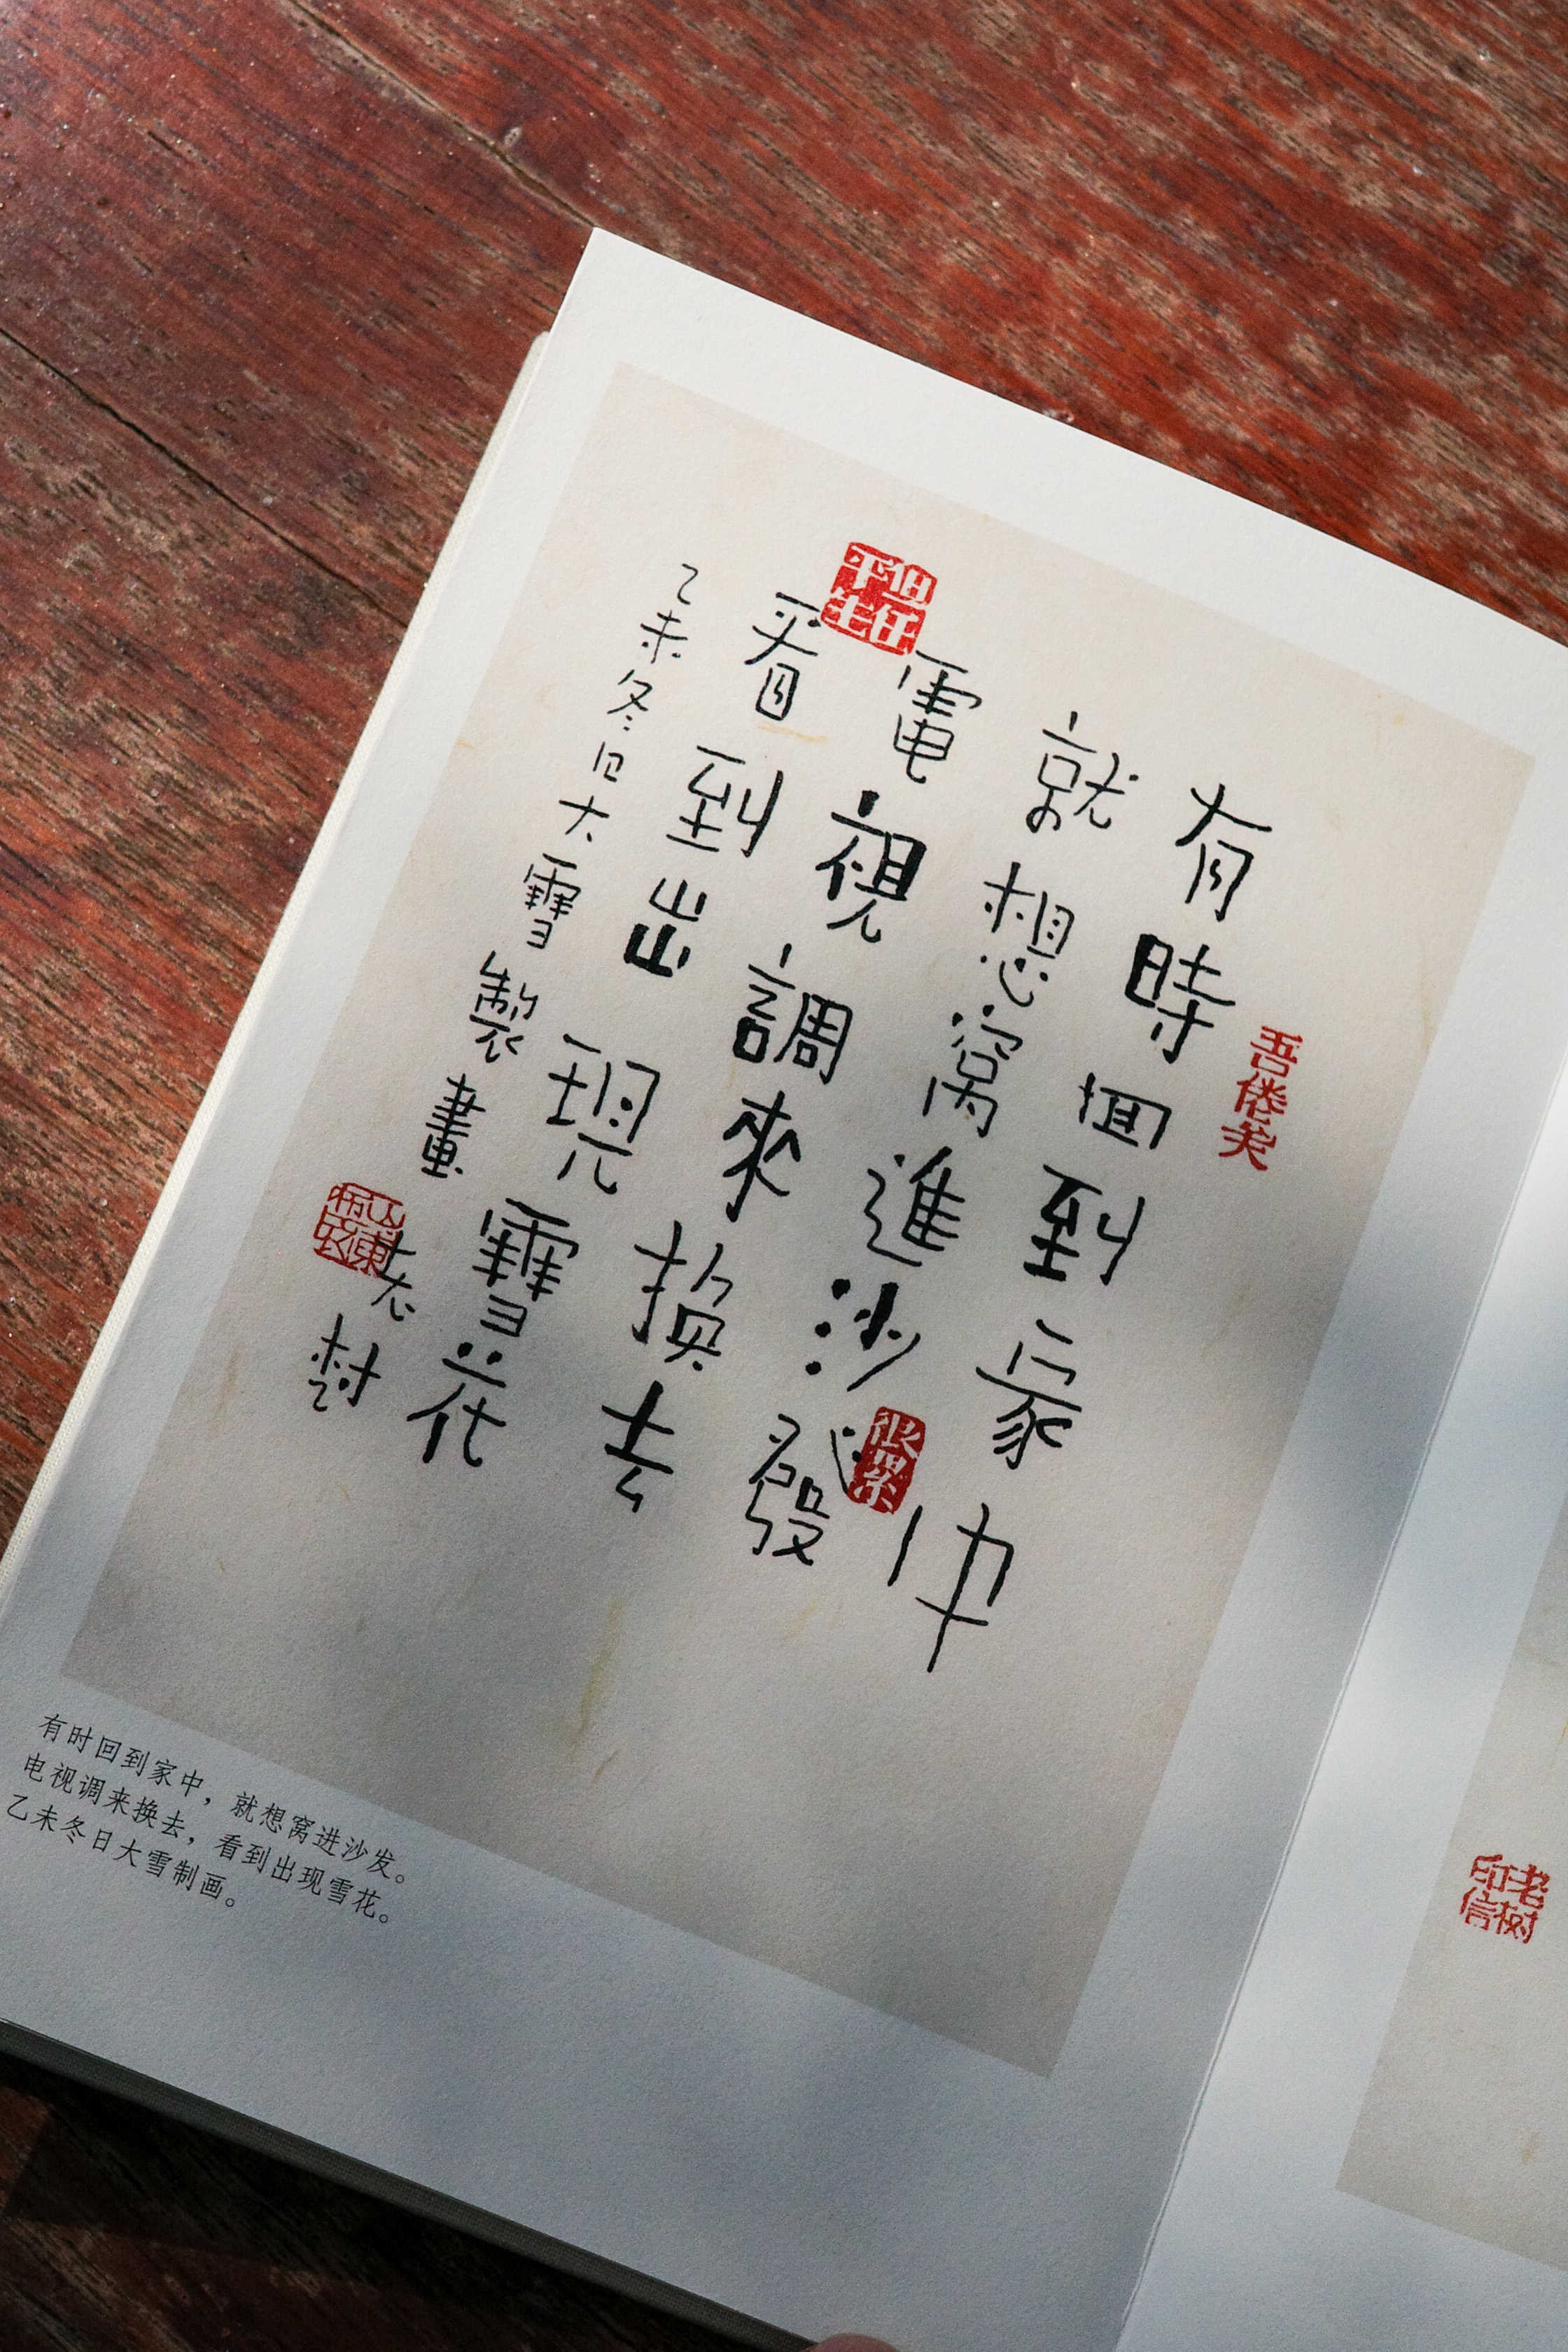 有時回到家中
就想窩進沙發
電視調來換去
看到出現雪花
乙未冬日大雪製畫
老樹
吾倦矣
很累
有时回到家中，就想窝进沙发。
电视调来换去，看到出现雪花。
乙未冬日大雪制画。
老树
印信